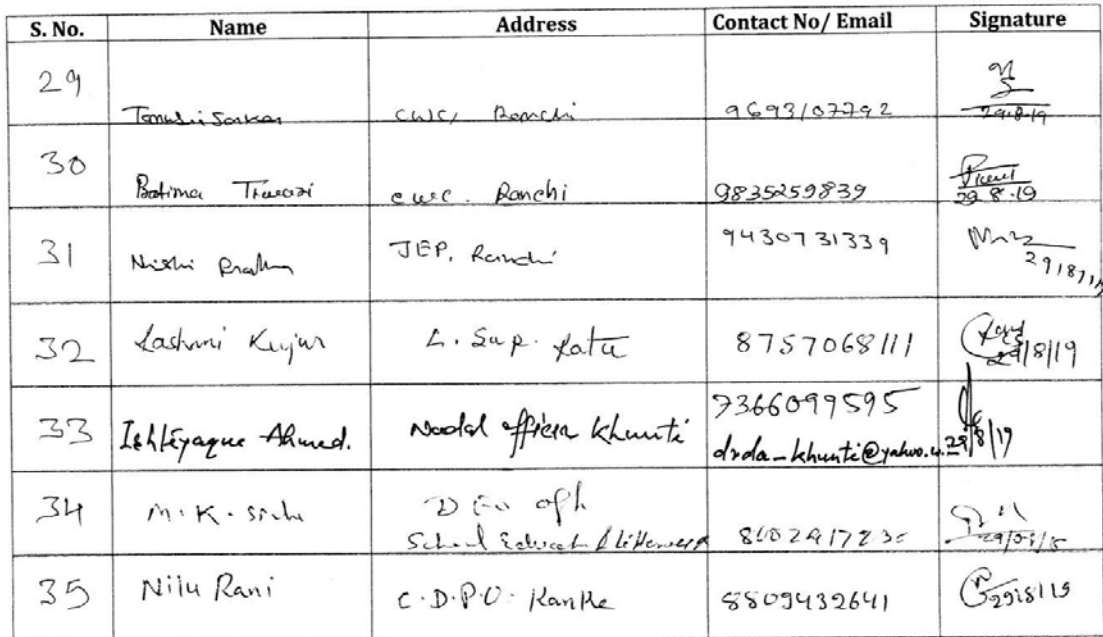 S. No. Name Address Contact No/ Email Signature
29 Sarkar CWC, Ranchi 9693107792 29.8.19
30 Tiwari CWC. Ranchi 9835259839 29.8.19
31 Nishi JEP, Ranchi 9430731339 29/8/19
32 Lashmi Kujur L. Sup. Ratu 8757068111 29/8/19
33 Ishteyaque Ahmed. Nodal officer Khunti 7366099595
drda_khunti@yahoo. 29/8/19
34 M.K. School 29/08/
35 Nilu Rani C.D.P.O. Kanke 8809432641 29/8/19